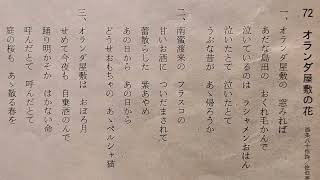 72 オランダ屋敷の花
一、オランダ屋敷の 窓みれば
あだな島田の おくれ毛かんで
泣いているのは ラシャメンおはん
泣いたとて 泣いたとて
うぶな昔が あゝ帰ろうか
二、南蛮渡来の フラスコの
甘いお酒に ついだまされて
蕾散らした 紫あやめ
あの日から あの日から
どうせおもちゃの あゝペルシャ猫
三、オランダ屋敷は おぼろ月
せめて今夜も 自棄酒のんで
踊り明かそか はかない命
呼んだとて 呼んだとて
庭の桜も あゝ散る春を